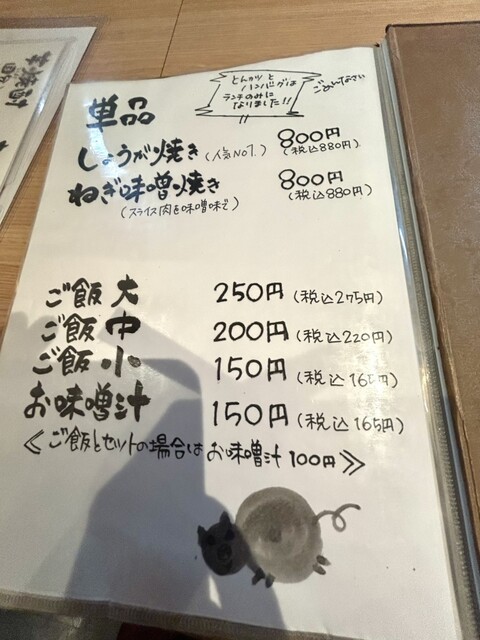 とんかつと
ハンバーグは
ランチのみに
なりました!!
ごめんなさい
単品
しょうが焼き(人気No1.) 800円
(税込880円)
ねぎ味噌焼き 800円
(スライス肉を味噌味で) (税込880円)
ご飯 大 250円(税込275円)
ご飯 中 200円(税込220円)
ご飯 小 150円(税込165円)
お味噌汁 150円(税込165円)
≪ご飯とセットの場合はお味噌汁100円≫